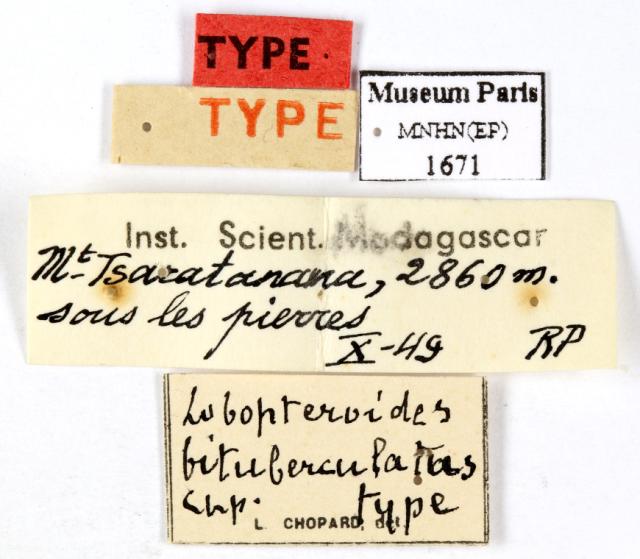 TYPE.
TYPE
Museum Paris
MNHN(EP)
1671
Inst. Scient. Madagascar
Mt Tsaratanana, 2860 m.
sous les pierres
X-49 RP
Lobopteroides
bituberculatus
Chp. type
L. CHOPARD, det.